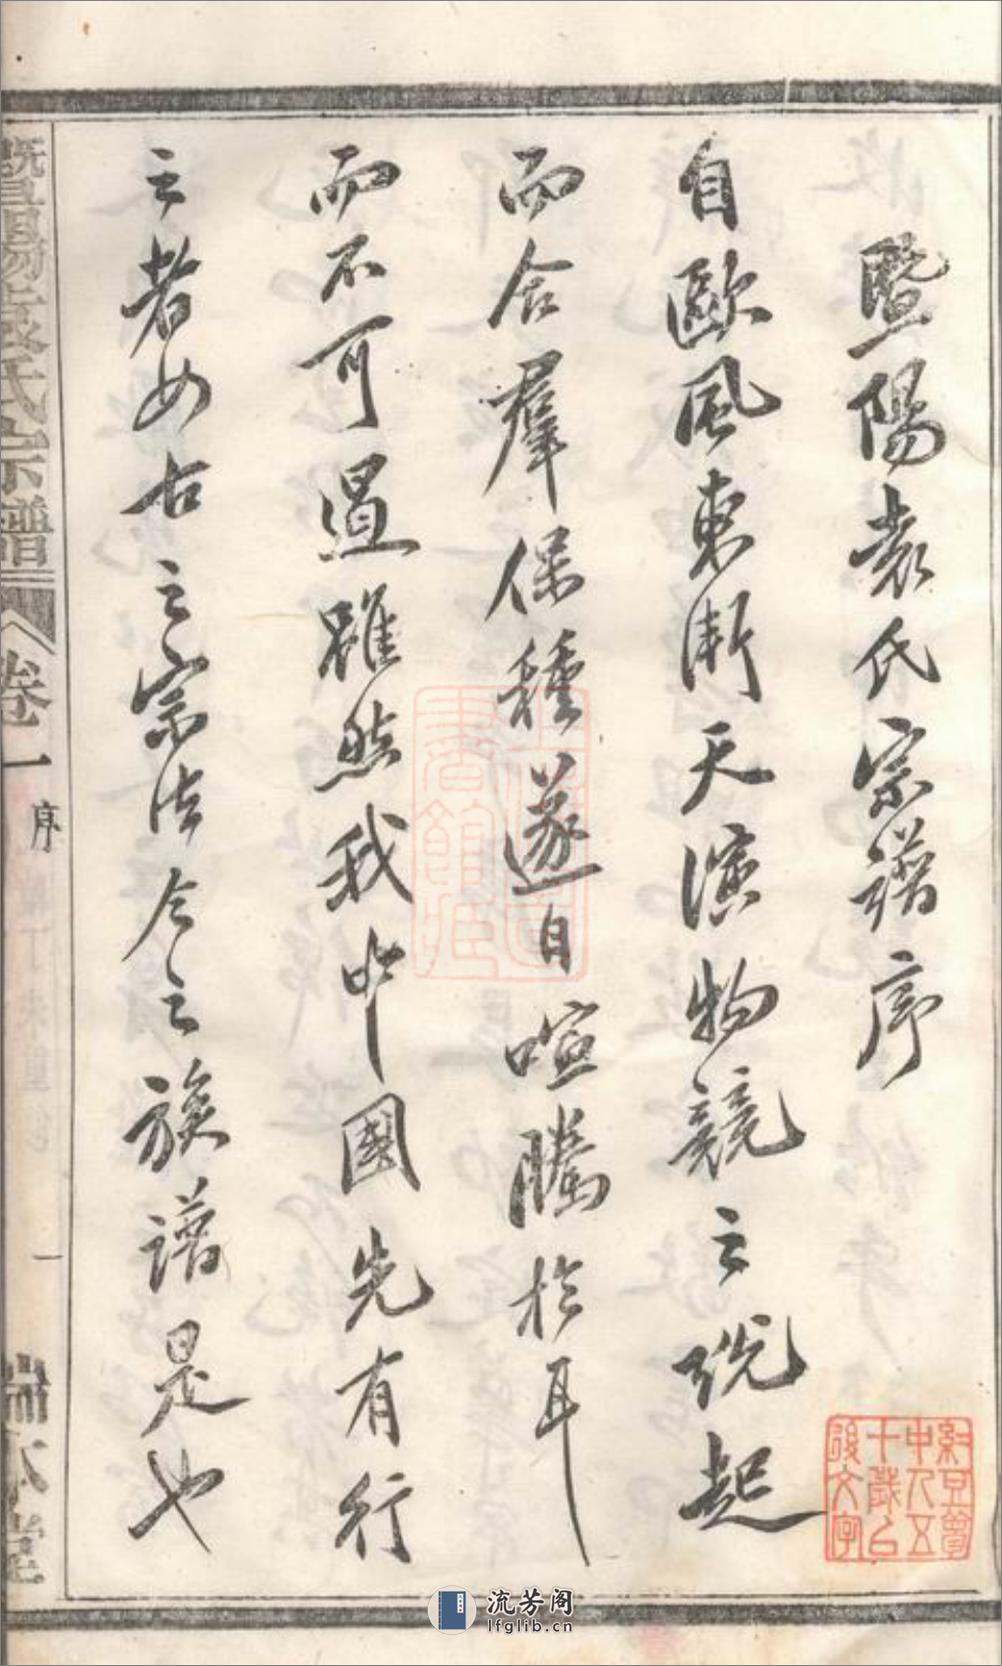 暨陽袁氏宗譜序
自歐風東漸天演物競之說起
而合羣保種遂日喧騰於耳
而不可遏雖然我中國先有行
之者如古之宗法今之族譜是也
暨陽袁氏宗譜
卷一
序
一
流芳阁
lfglib.cn